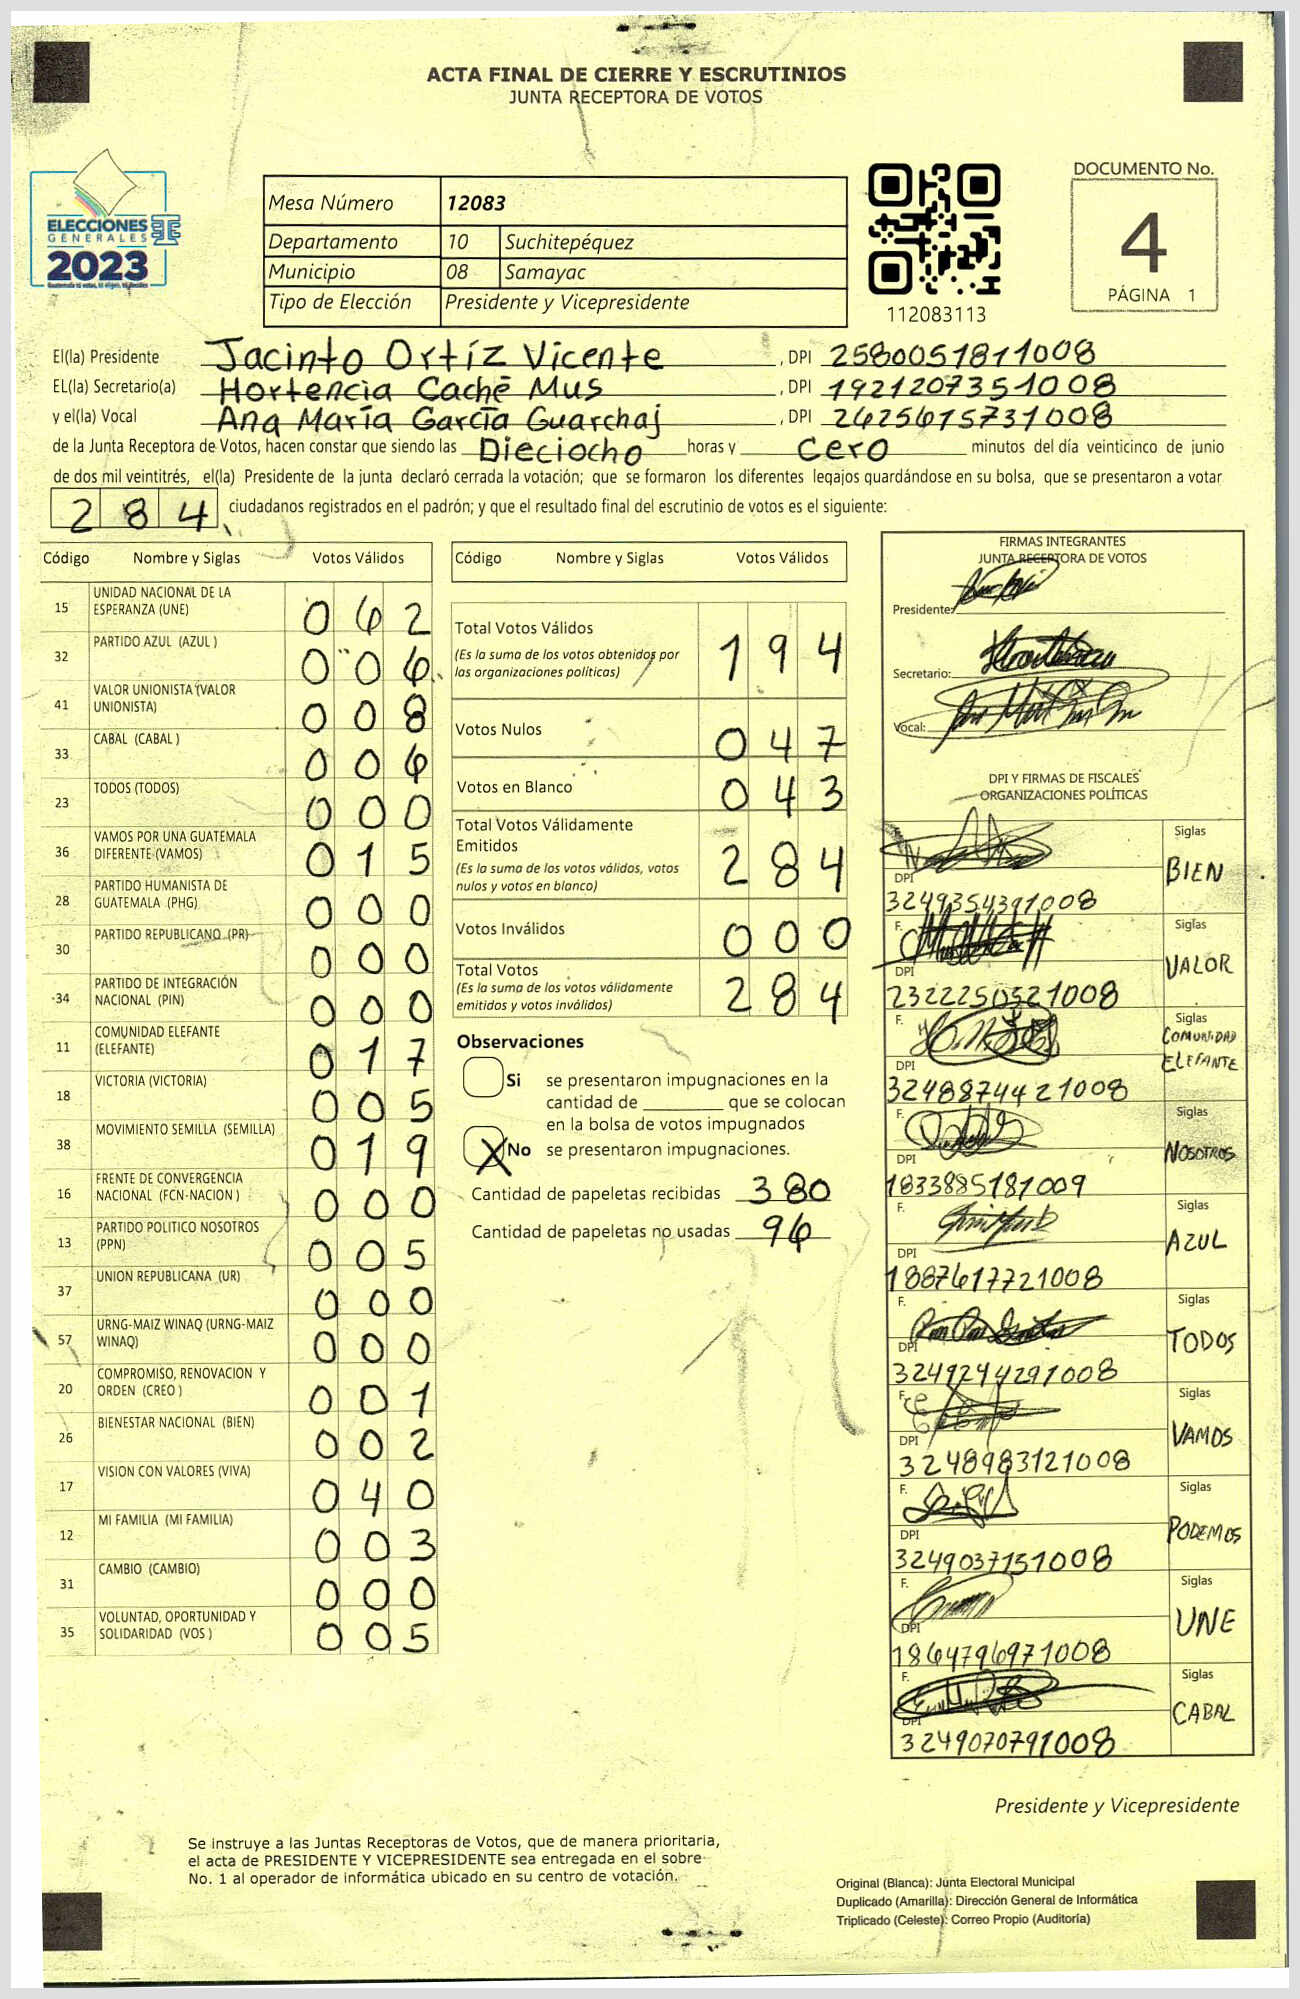 ACTA FINAL DE CIERRE Y ESCRUTINIOS
JUNTA RECEPTORA DE VOTOS
ELECCIONES
GENERALES
2023
Mesa Número 12083
Departamento 10 Suchitepéquez
Municipio 08 Samayac
Tipo de Elección Presidente y Vicepresidente
112083113
DOCUMENTO No.
4
PÁGINA 1
El(la) Presidente Jacinto Ortíz Vicente , DPI 2580051811008
EL(la) Secretario(a) Hortencia Caché Mus , DPI 1921207351008
y el(la) Vocal Ana María García Guarchaj , DPI 2625615731008
de la Junta Receptora de Votos, hacen constar que siendo las Dieciocho horas y cero minutos del día veinticinco de junio
de dos mil veintitrés, el(la) Presidente de la junta declaró cerrada la votación; que se formaron los diferentes legajos quardándose en su bolsa, que se presentaron a votar
284 ciudadanos registrados en el padrón; y que el resultado final del escrutinio de votos es el siguiente:
Código Nombre y Siglas Votos Válidos
15 UNIDAD NACIONAL DE LA ESPERANZA (UNE) 062
32 PARTIDO AZUL (AZUL ) 006
41 VALOR UNIONISTA (VALOR UNIONISTA) 008
33 CABAL (CABAL ) 006
23 TODOS (TODOS) 000
36 VAMOS POR UNA GUATEMALA DIFERENTE (VAMOS) 015
28 PARTIDO HUMANISTA DE GUATEMALA (PHG) 000
30 PARTIDO REPUBLICANO (PR) 000
34 PARTIDO DE INTEGRACIÓN NACIONAL (PIN) 000
11 COMUNIDAD ELEFANTE (ELEFANTE) 017
18 VICTORIA (VICTORIA) 005
38 MOVIMIENTO SEMILLA (SEMILLA) 019
16 FRENTE DE CONVERGENCIA NACIONAL (FCN-NACION ) 000
13 PARTIDO POLITICO NOSOTROS (PPN) 005
37 UNION REPUBLICANA (UR) 000
57 URNG-MAIZ WINAQ (URNG-MAIZ WINAQ) 000
20 COMPROMISO, RENOVACION Y ORDEN (CREO ) 001
26 BIENESTAR NACIONAL (BIEN) 002
17 VISION CON VALORES (VIVA) 040
12 MI FAMILIA (MI FAMILIA) 003
31 CAMBIO (CAMBIO) 000
35 VOLUNTAD, OPORTUNIDAD Y SOLIDARIDAD (VOS ) 005
Código Nombre y Siglas Votos Válidos
Total Votos Válidos 194
(Es la suma de los votos obtenidos por
las organizaciones políticas)
Votos Nulos 047
Votos en Blanco 043
Total Votos Válidamente
Emitidos 284
(Es la suma de los votos válidos, votos
nulos y votos en blanco)
Votos Inválidos 000
Total Votos 284
(Es la suma de los votos válidamente
emitidos y votos inválidos)
Observaciones
Si se presentaron impugnaciones en la
cantidad de ________ que se colocan
en la bolsa de votos impugnados
X No se presentaron impugnaciones.
Cantidad de papeletas recibidas 380
Cantidad de papeletas no usadas 96
FIRMAS INTEGRANTES
JUNTA RECEPTORA DE VOTOS
Presidente:
Secretario:
Vocal:
DPI Y FIRMAS DE FISCALES
ORGANIZACIONES POLÍTICAS
Siglas
BIEN
DPI
3249354391008
F.
Siglas
VALOR
DPI
2322250521008
F.
Siglas
COMUNIDAD
ELEFANTE
DPI
3248874421008
F.
Siglas
NOSOTROS
DPI
1833885181009
F.
Siglas
AZUL
DPI
1887617721008
F.
Siglas
TODOS
DPI
3249244291008
F.
Siglas
VAMOS
DPI
3248983121008
F.
Siglas
PODEMOS
DPI
3249037151008
F.
Siglas
UNE
DPI
1864796971008
F.
Siglas
CABAL
DPI
3249070791008
Presidente y Vicepresidente
Se instruye a las Juntas Receptoras de Votos, que de manera prioritaria,
el acta de PRESIDENTE Y VICEPRESIDENTE sea entregada en el sobre
No. 1 al operador de informática ubicado en su centro de votación.
Original (Blanca): Junta Electoral Municipal
Duplicado (Amarilla): Dirección General de Informática
Triplicado (Celeste): Correo Propio (Auditoría)